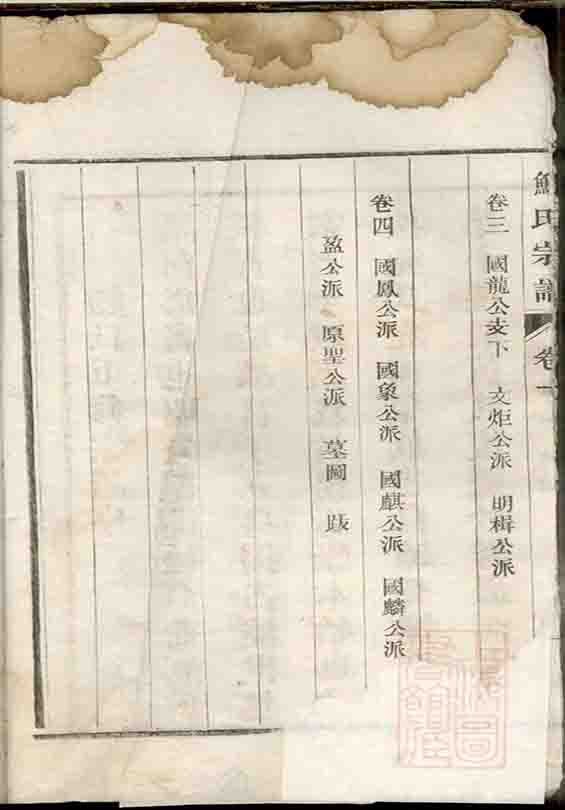 氏宗譜 卷一
卷三 國龍公支下 文炬公派 明楫公派
卷四 國鳳公派 國象公派 國麒公派 國麟公派
盈公派 原聖公派 墓圖 跋